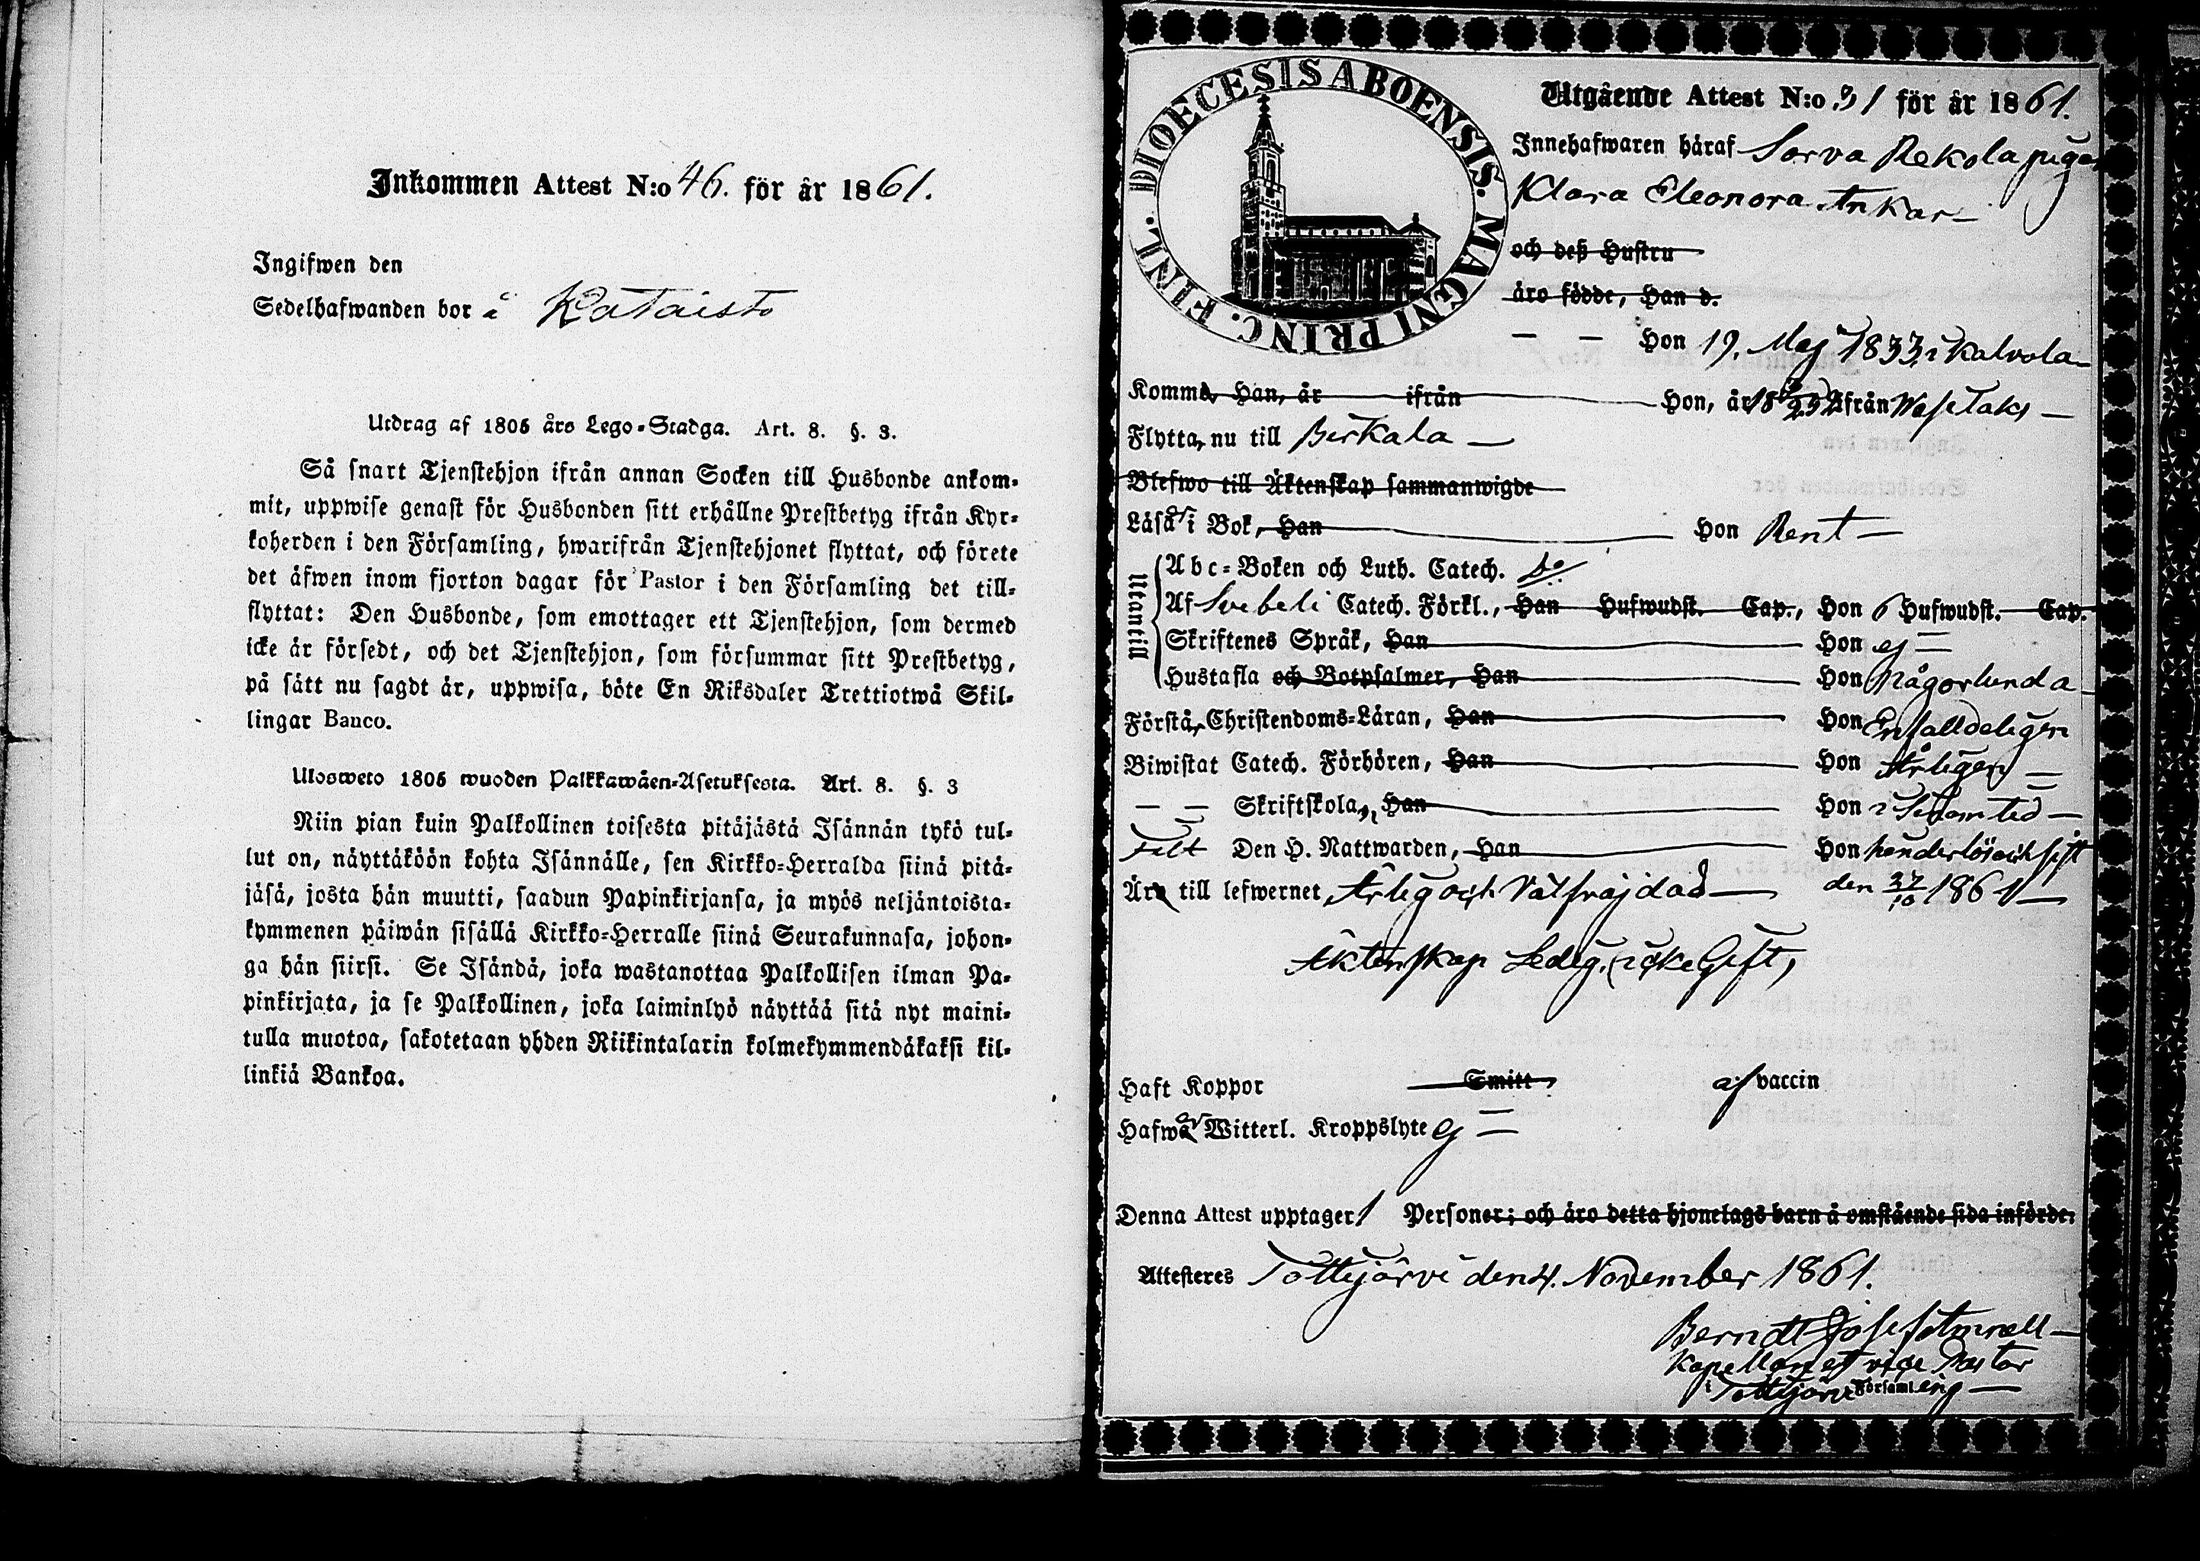 Inkommen Attest N:o 46. för år 1861.
Ingifwen den
Sedelhafwanden bor å Kataisto
Utdrag af 1805 års Lego-Stadga. Art. 8. §. 3.
Så snart Tjenstehjon ifrån annan Socken till Husbonde ankom-
mit, uppwise genast för Husbonden sitt erhållne Prestbetyg ifrån Kyr-
koherden i den Församling, hwarifrån Tjenstehjonet flyttat, och förete
det äfwen inom fjorton dagar för Pastor i den Församling det till-
flyttat: Den Husbonde, som emottager ett Tjenstehjon, som dermed
icke är försedt, och det Tjenstehjon, som försummar sitt Prestbetyg,
på sätt nu sagdt är, uppwisa, böte En Riksdaler Trettiotwå Skil-
lingar Banco.
Ulosweto 1805 wuoden Palkkawäen-Asetuksesta. Art. 8. §. 3
Niin pian kuin Palkollinen toisesta pitäjästä Isännän tykö tul-
lut on, näyttäköön kohta Isännälle, sen Kirkko-Herralda siinä pitä-
jäsä, josta hän muutti, saadun Papinkirjansa, ja myös neljäntoista-
kymmenen päiwän sisällä Kirkko-Herralle siinä Seurakunnasa, johon-
ga hän siirsi. Se Isändä, joka wastanottaa Palkollisen ilman Pa-
pinkirjata, ja se Palkollinen, joka laiminlyö näyttää sitä nyt maini-
tulla muotoa, sakotetaan yhden Riikintalarin kolmekymmendäkaksi kil-
linkiä Bankoa.
DIOECESIS ABOENSIS. MAGNI PRINC. FINL.
Utgående Attest N:o 31 för år 1861.
Innehafwaren häraf Sorva Rekola pigan
Klara Eleonora Ankar
och deß Hustru
äro födde, Han d.
— — Hon 19. Maj 1833. i Kalvola
Komme, Han, år ifrån Hon, år 18 ifrån Wesilaks
Flytta, nu till Birkala
Blefwo till Äktenskap sammanwigde
Läsa i Bok, Han Hon Rent
Utantill
Abc-Boken och Luth. Catech. do
Af Svebeli Catech. Förkl., Han Hufwudst. Cap., Hon 6 Hufwudst. Cap.
Skriftenes Språk, Han Hon ej
Hustafla och Botpsalmer, Han Hon någorlunda
Förstå, Christendoms-Läran, Han Hon Enfalldeligen
Biwistat Catech. Förhören, Han Hon Årligen
— — Skriftskola, Han Hon i Sedom ted
Den H. Nattwarden, Han Hon hinderlös och sist
Äro till lefwernet Ärlig och Välfräjdad den 27/10 1861
Äktenskap Ledig, icke Gift,
Haft Koppor Smitt, af vaccin
Hafwa Witterl. Kroppslyte ej
Denna Attest upptager 1 Personer; och äro detta hjonelags barn å omstående sida införde.
Attesteres Tottijärvi den 4. November 1861.
Berndt Josef
Kapellan et vice Pastor
i Tottijärvi Församling